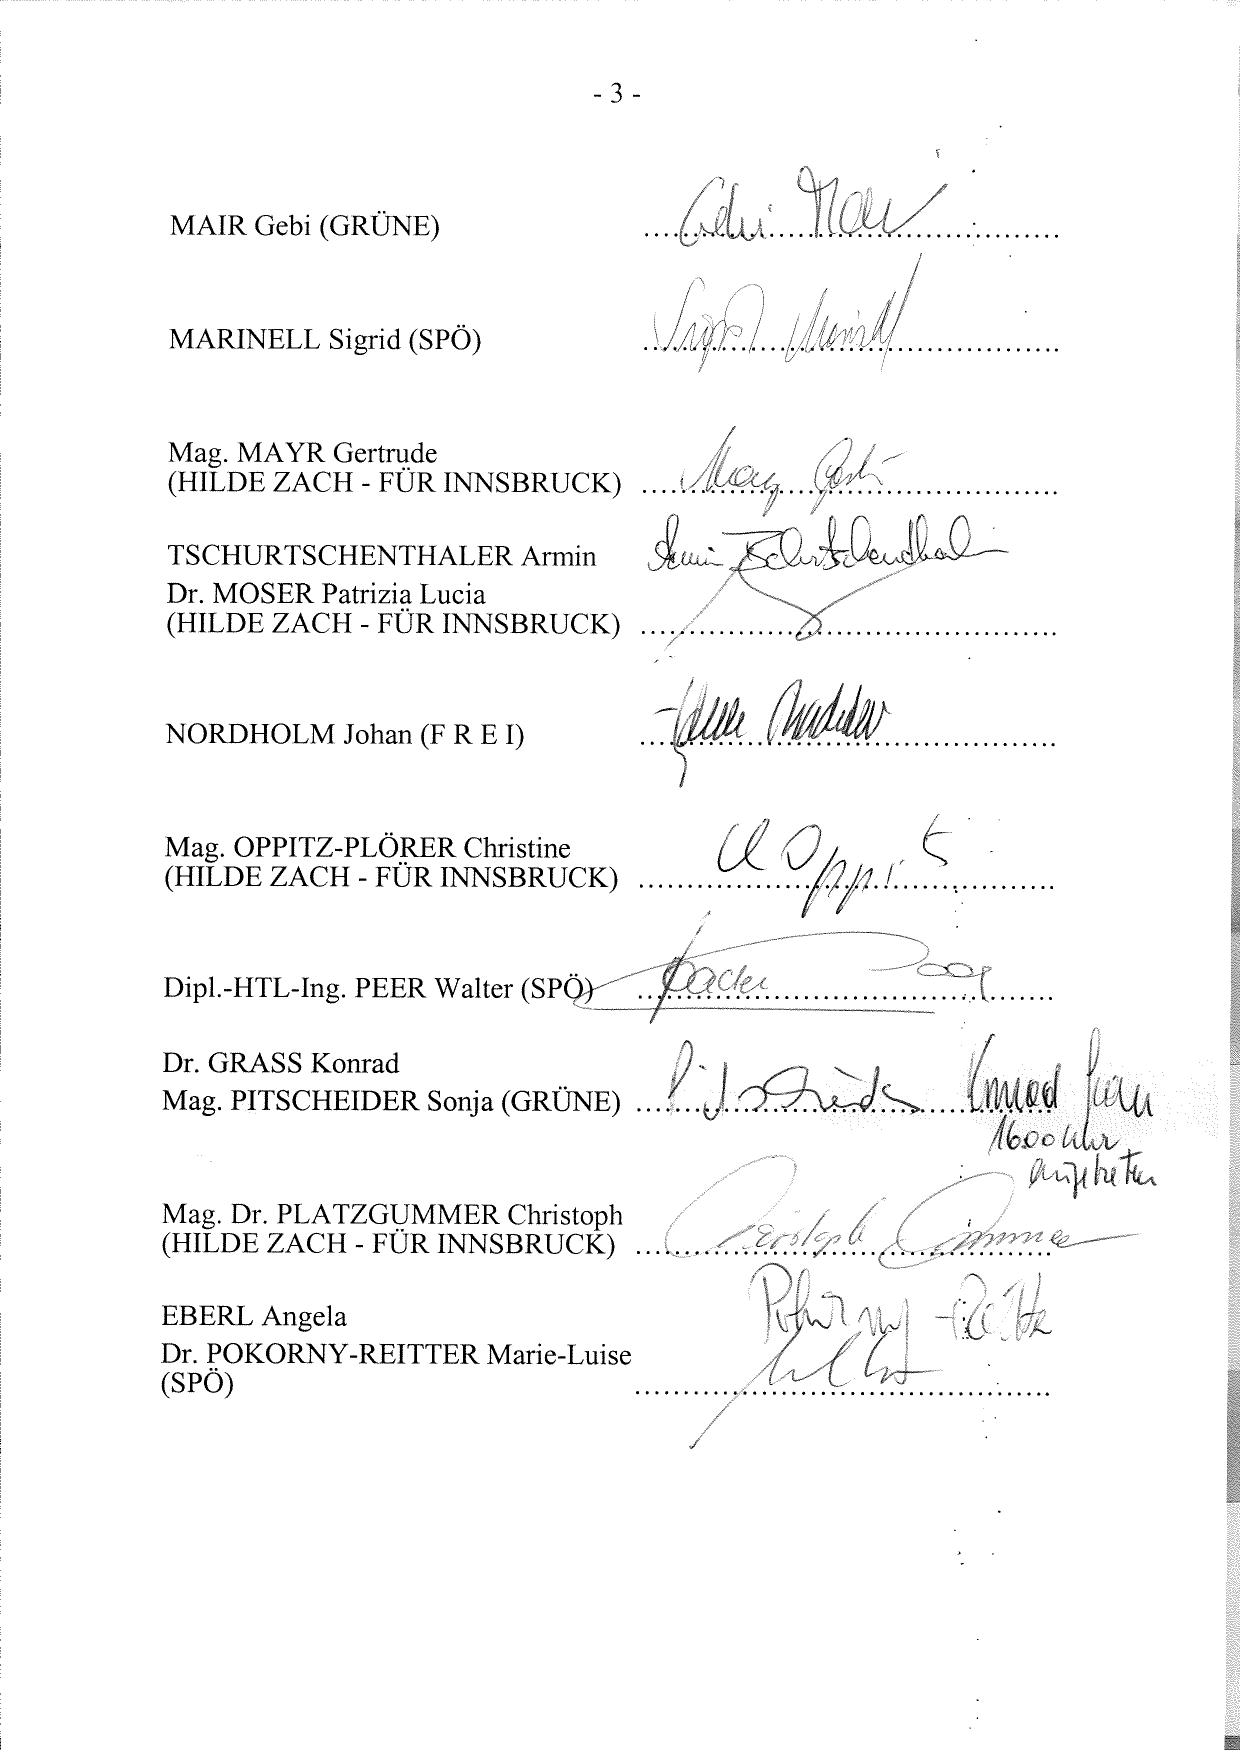 - 3 -
MAIR Gebi (GRÜNE) Gebi Mair
MARINELL Sigrid (SPÖ) Sigrid Marinell
Mag. MAYR Gertrude
(HILDE ZACH - FÜR INNSBRUCK)
TSCHURTSCHENTHALER Armin Armin Tschurtschenthaler
Dr. MOSER Patrizia Lucia
(HILDE ZACH - FÜR INNSBRUCK)
NORDHOLM Johan (F R E I)
Mag. OPPITZ-PLÖRER Christine
(HILDE ZACH - FÜR INNSBRUCK)
Dipl.-HTL-Ing. PEER Walter (SPÖ)
Dr. GRASS Konrad
Mag. PITSCHEIDER Sonja (GRÜNE) Pitscheider Konrad Grass
1600 Uhr
Mag. Dr. PLATZGUMMER Christoph
(HILDE ZACH - FÜR INNSBRUCK)
EBERL Angela Pokorny-Reitter
Dr. POKORNY-REITTER Marie-Luise
(SPÖ)